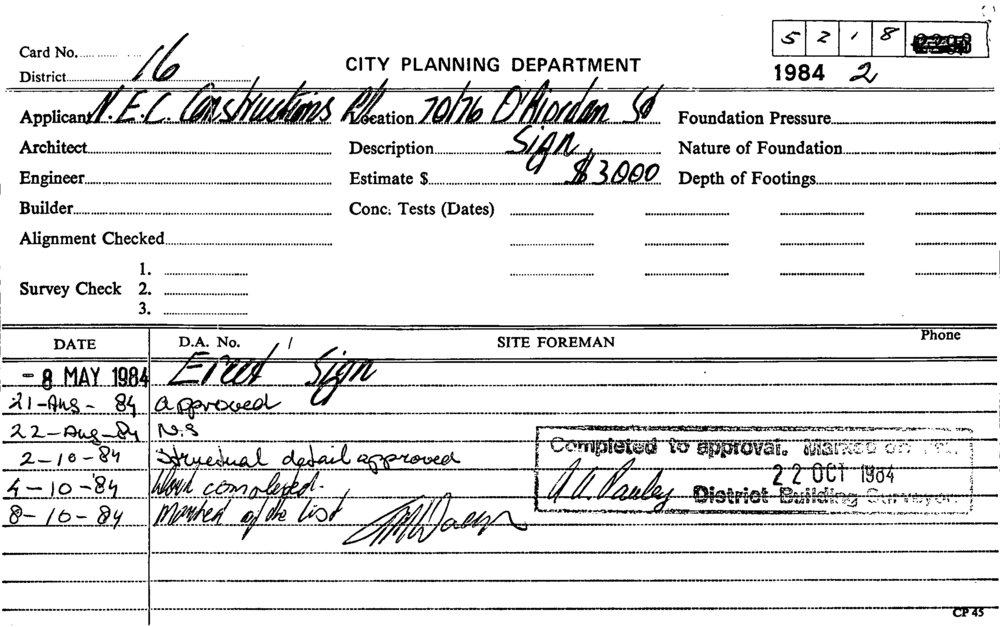 5 2 1 8
Card No.
District 16
CITY PLANNING DEPARTMENT
1984 2
Applicant N.E.C. Constructions P/L Location 70/76 O'Riordan St Foundation Pressure
Architect Description Sign Nature of Foundation
Engineer Estimate $ $3000 Depth of Footings
Builder Conc. Tests (Dates)
Alignment Checked
1.
Survey Check 2.
3.
DATE D.A. No. / SITE FOREMAN Phone
- 8 MAY 1984 Erect Sign
21-Aug-84 approved
22-Aug-84 N.S
2-10-84 structual detail approved
4-10-84 Work completed.
8-10-84 Marked of the list
Completed to approval. Marked on
22 OCT 1984
District Building Surveyor.
CP 45